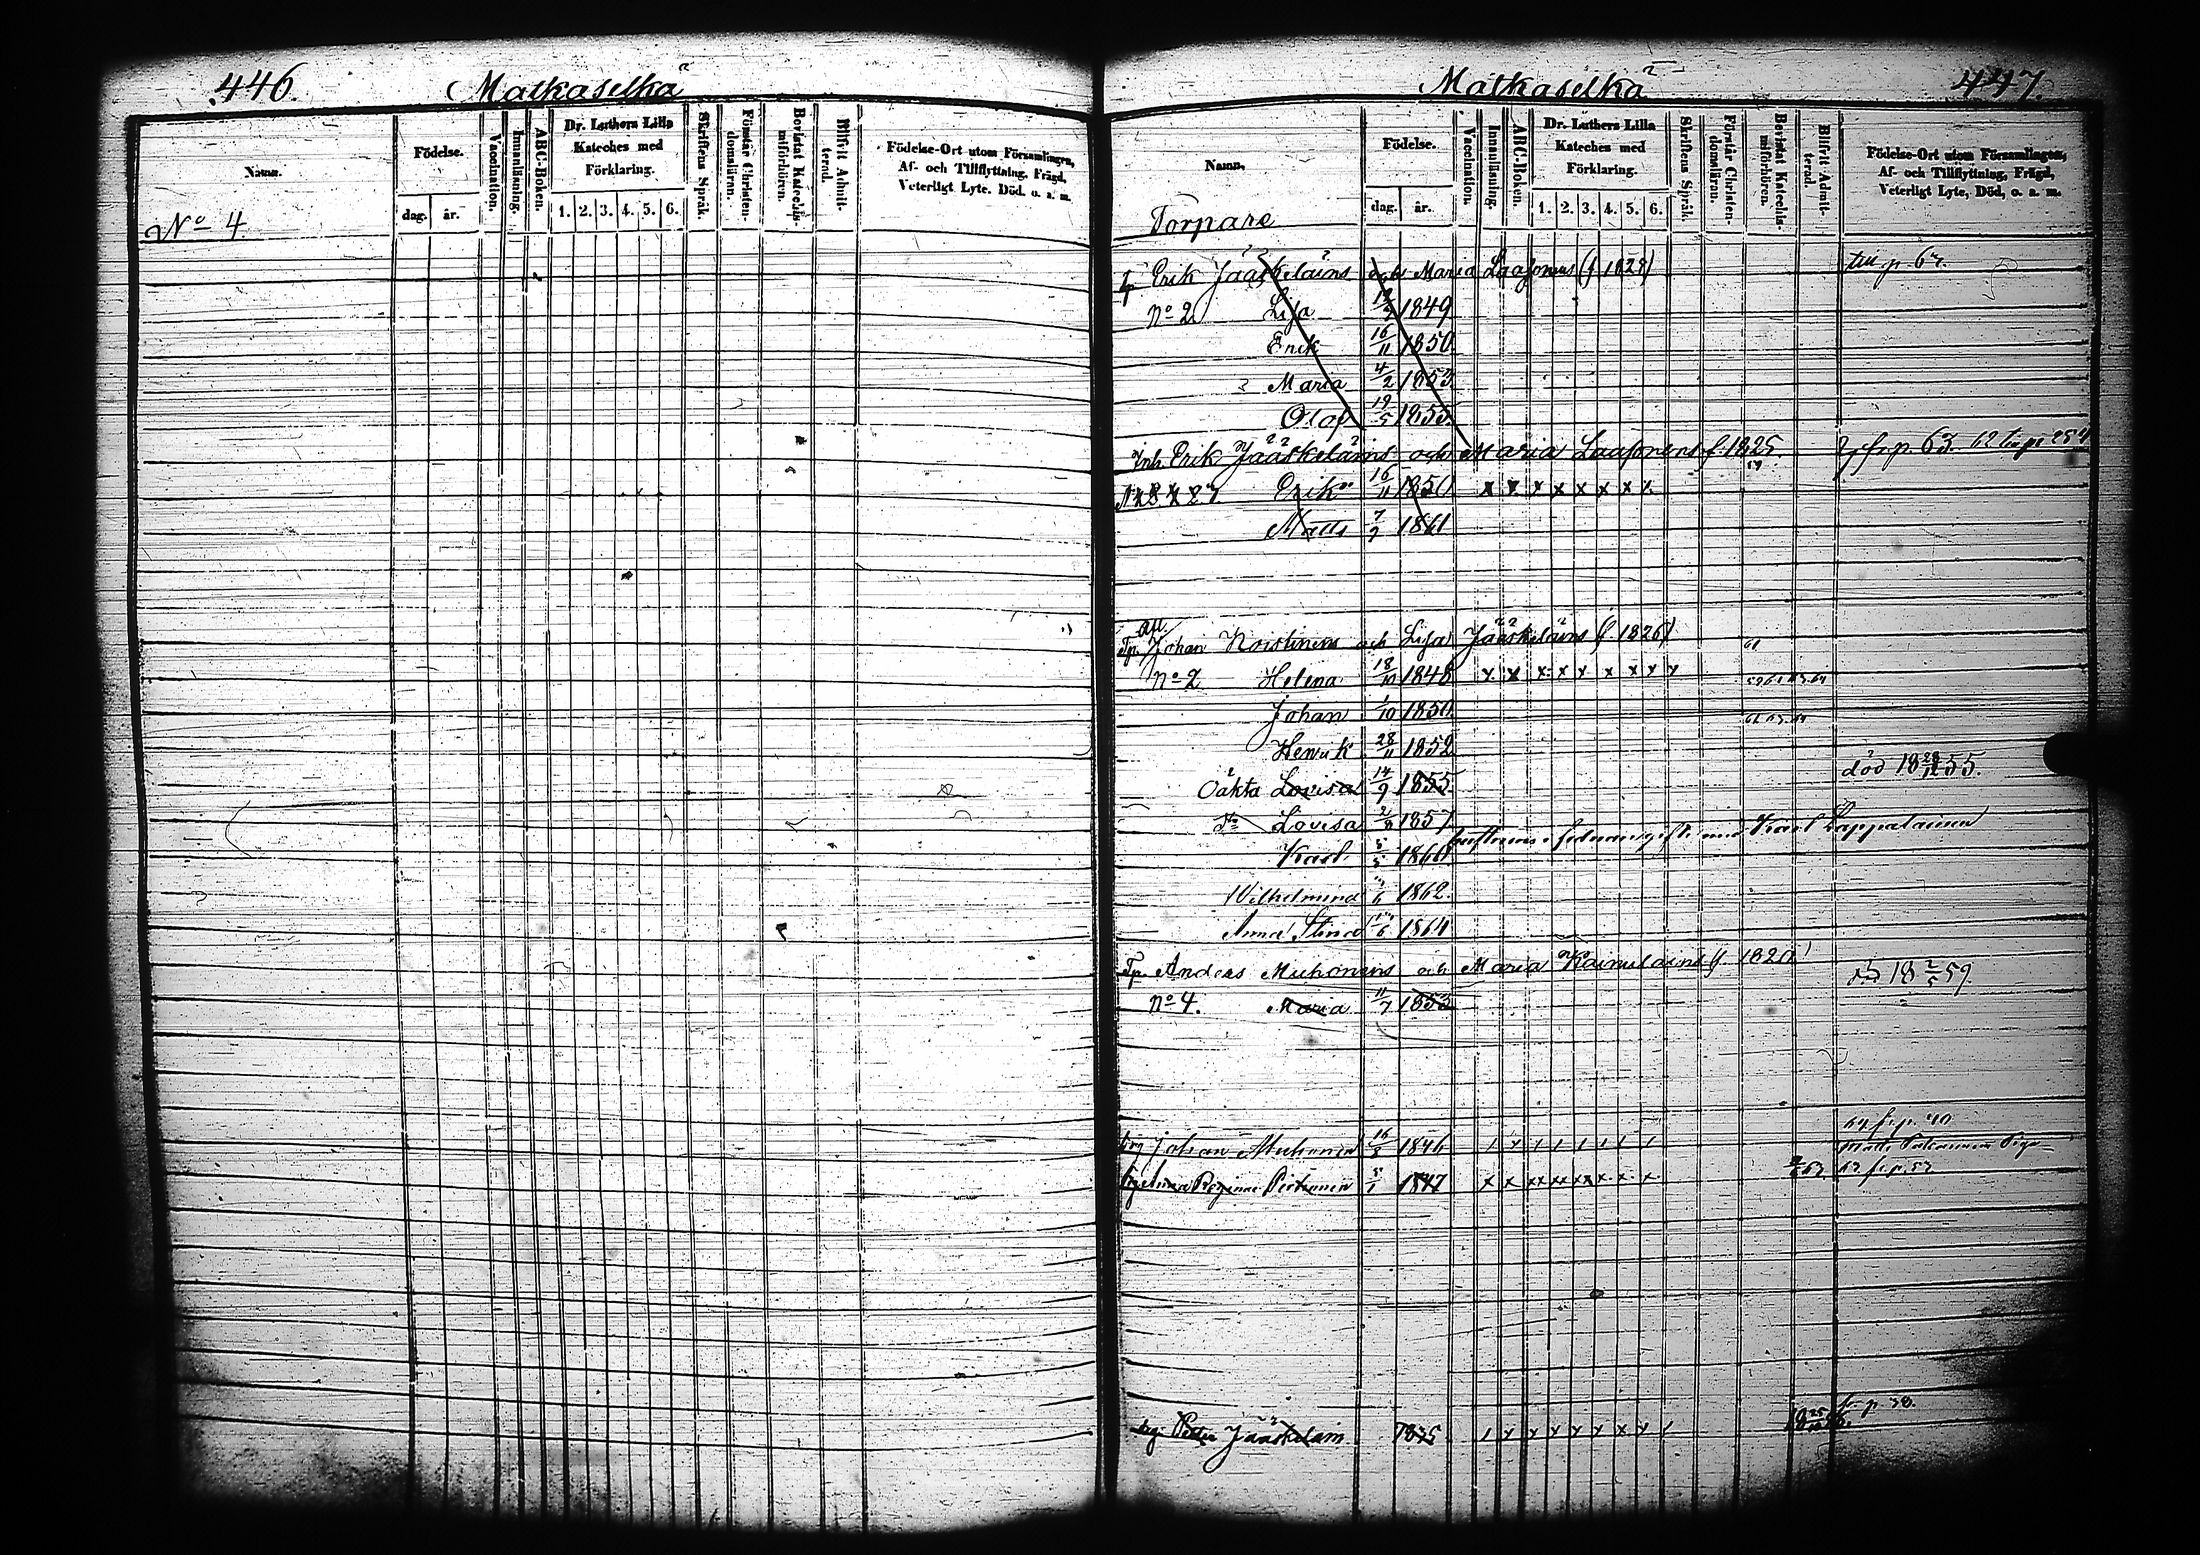 446. Matkaselkä
Namn. Födelse. dag. år. Vaccination. Innanläsning. ABC-Boken. Dr. Luthers Lilla Kateches med Förklaring. 1. 2. 3. 4. 5. 6. Skriftens Språk. Förstår Christendomsläran. Bevistat Katechismiförhören. Blifvit Admitterad. Födelse-Ort utom Församlingen, Af- och Tillflyttning, Frägd, Veterligt Lyte. Död. o. s. m.
No 4
Matkaselkä 447.
Namn. Födelse. dag. år. Vaccination. Innanläsning. ABC-Boken. Dr. Luthers Lilla Kateches med Förklaring. 1. 2. 3. 4. 5. 6. Skriftens Språk. Förstår Christendomsläran. Bevistat Katechismiförhören. Blifvit Admitterad. Födelse-Ort utom Församlingen, Af- och Tillflyttning, Frägd, Veterligt Lyte, Död, o. s. m.
Torpare
Tp Erik Jääskeläins och Maria Laasonens (f 1828)
No 2 Lisa 1849
Erik 16/11 1850
Maria 4/2 1853
Olof 19/5 1855
Inh. Erik Jääskeläins och Maria Laasonens f. 1825. fr p. 63.
Erik 16/11 1850 x x x x x x x x
Matts 1861
Tp. Johan Koistinens och Lisa Jääskeläins (f. 1826)
No 2 Helena 1848
Johan 1/10 1850
Henrik 28/11 1852
Oäkta Lovisa 14/9 1855 död 18 55.
Lovisa 2/8 1857
Karl 1860 gift med Karl Lappalainen
Wilhelmina 1862
Anna Stina 1864
Tp. Anders Muhonens och Maria Kaimulains f. 1820
No 4. Maria 11/7 1853 död 18 59.
Johan Muhonen 1846
Regina 1847
Petter Jääskeläin 1835